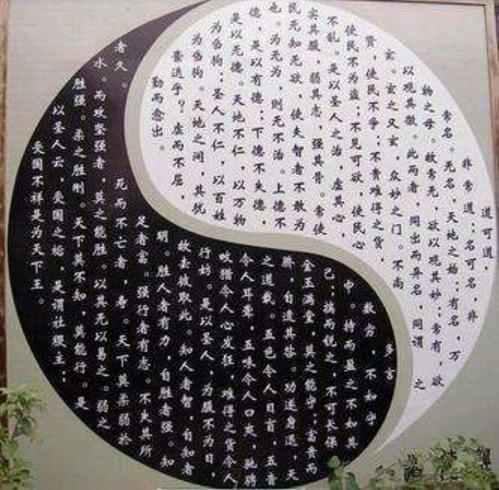 道可道，
非常道；名可名，非
常名。无名，天地之始；有名，万
物之母。故常无，欲以观其妙；常有，欲
以观其徼。此两者，同出而异名，同谓之
玄。玄之又玄，众妙之门。不尚
贤，使民不争；不贵难得之货，
使民不为盗；不见可欲，使民心
不乱。是以圣人之治，虚其心，
实其腹，弱其志，强其骨。常使
民无知无欲，使夫智者不敢为
也。为无为，则无不治。上德不
德，是以有德；下德不失德，
是以无德。天地不仁，以万物
为刍狗；圣人不仁，以百姓
为刍狗。天地之间，其犹
乎？虚而不屈，
而愈出。
多言
数穷，不如守
中。持而盈之不如其
已；揣而锐之，不可长保
金玉满堂，莫之能守；富贵而
骄，自遗其咎。功遂身退，天
之道哉。五色令人目盲，五音
令人耳聋，五味令人口爽，驰骋
畋猎令人心发狂，难得之货令人
行妨，是以圣人，为腹不为目，
故去彼取此。知人者智，自知者
明。胜人者有力，自胜者强。知
足者富。强行者有志。不失其所
者久。死而不亡者，寿。天下莫柔弱於
水。而攻坚强者，莫之能胜。以其无以易之。弱之
胜强。柔之胜刚。天下莫不知，莫能行。是
以圣人云，受国之垢，是谓社稷主；
受国不祥是为天下王。